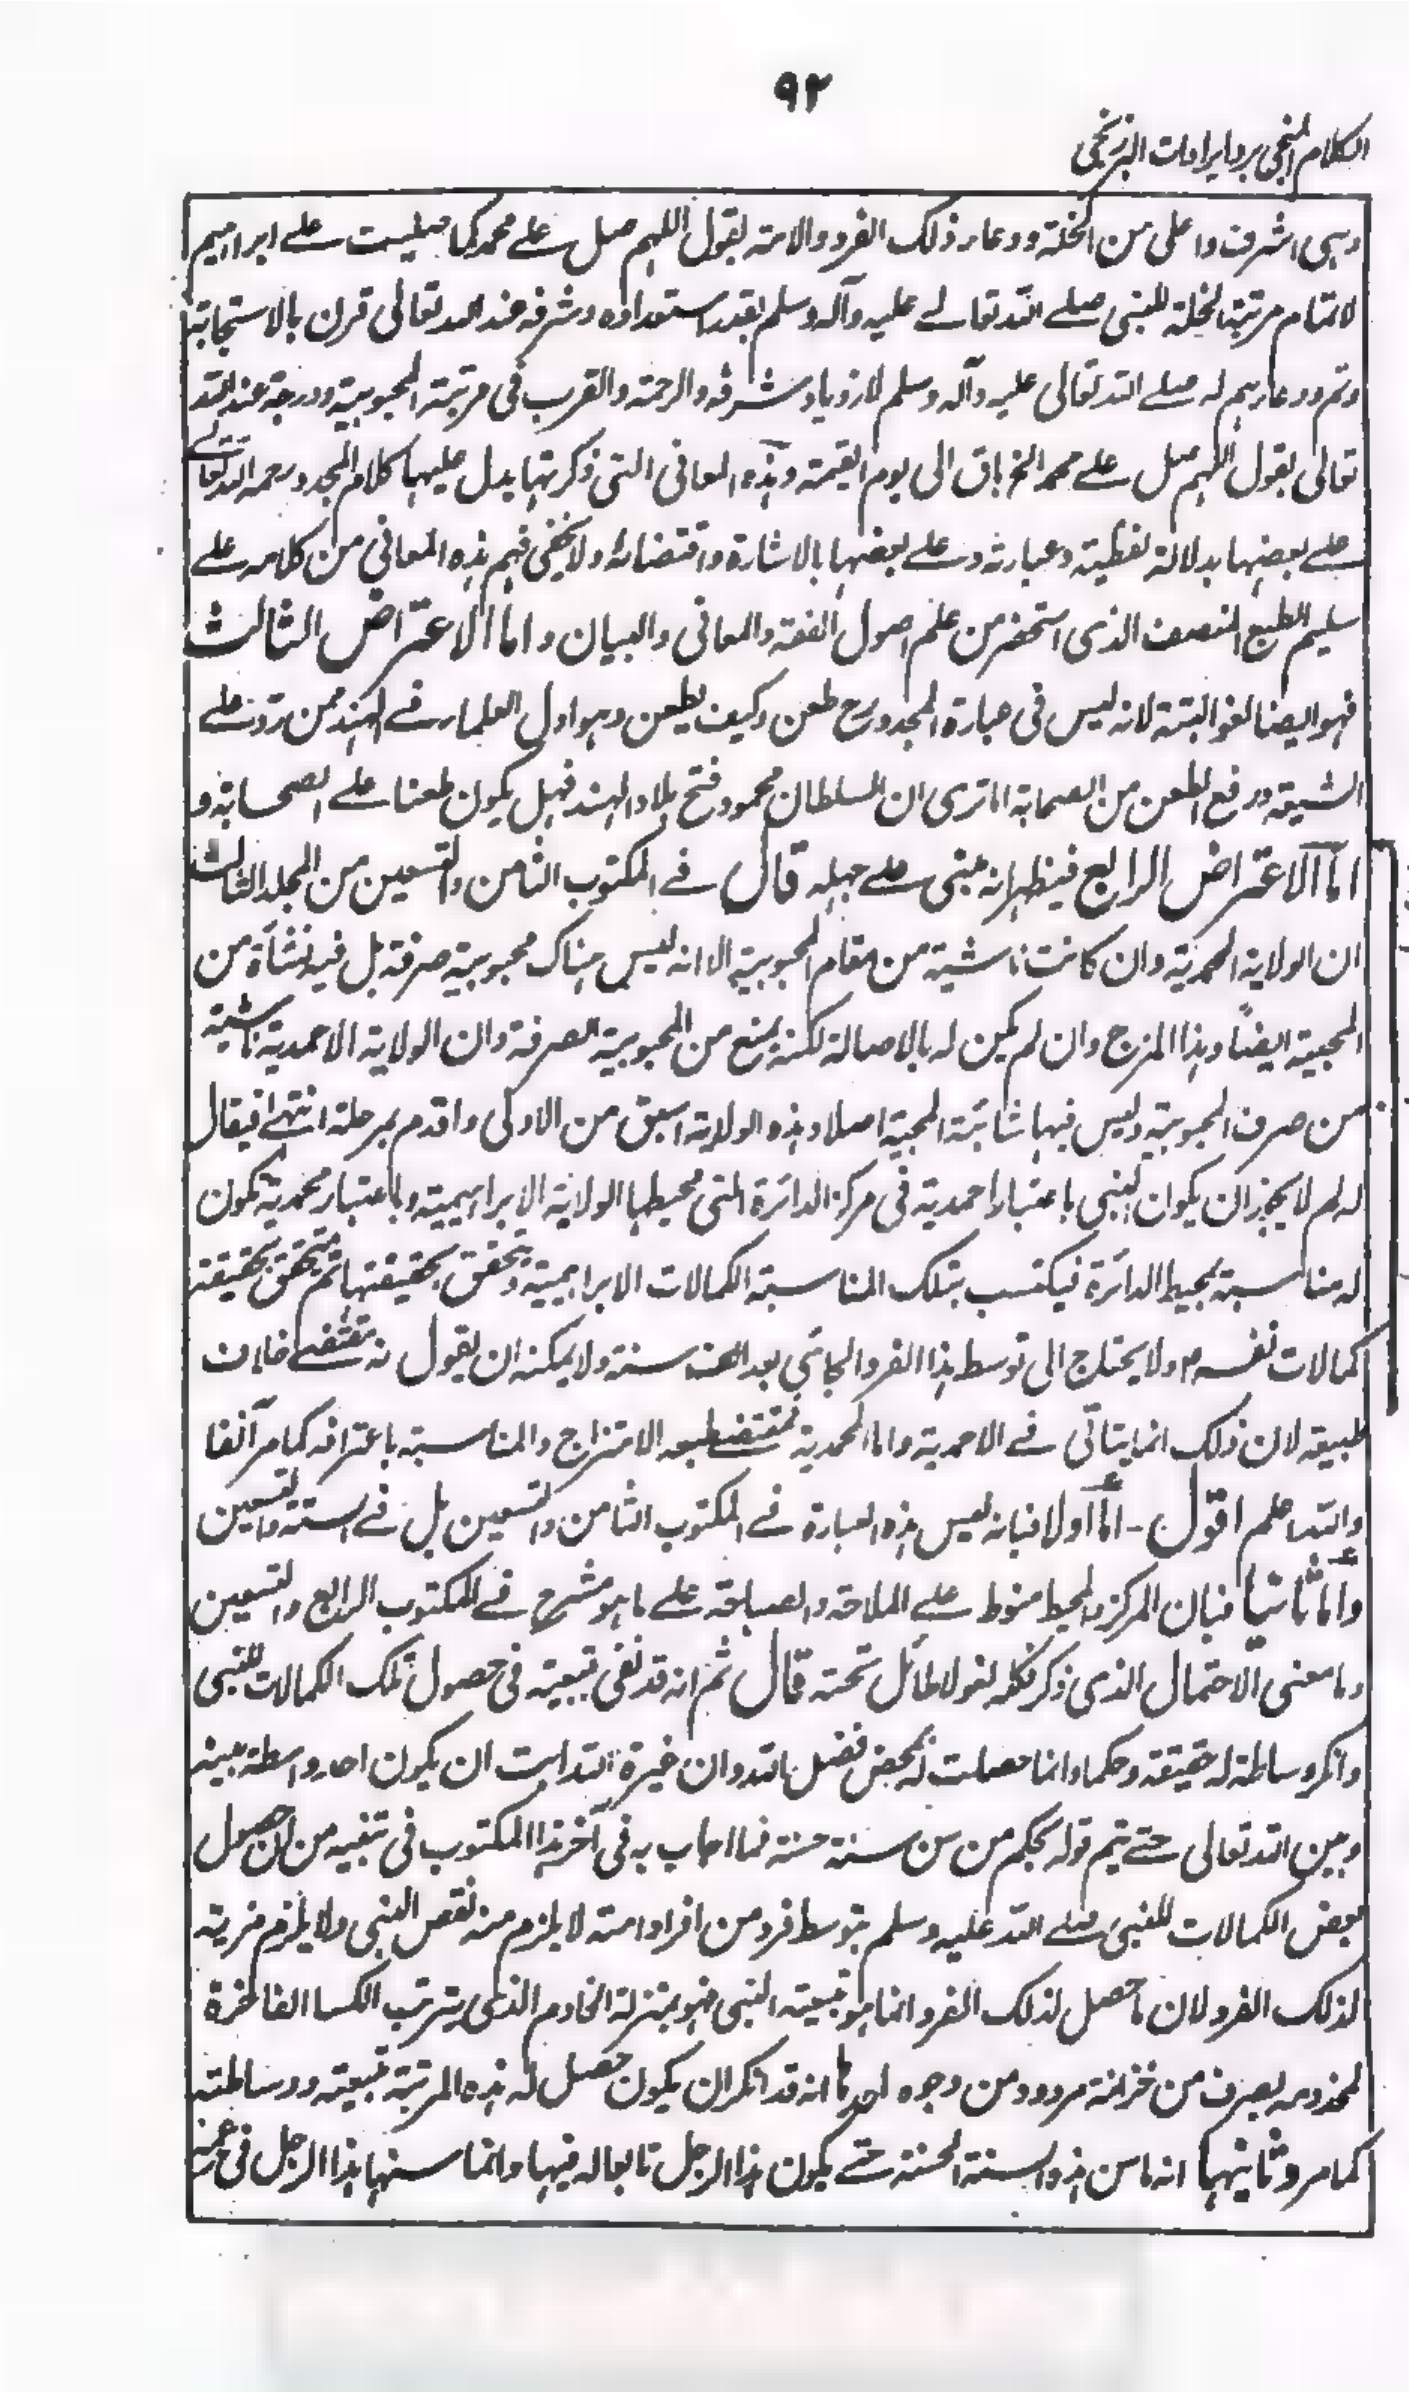 ٩٢
الكلام المنجي برد ايرادات البرزنجي
وهي اشرف واعلى من الخلة ودعاء ذلك الفرد والامة بقول اللهم صل على محمد كما صليت على ابراهيم
لاتمام مرتبة الخلة للنبي صلى الله تعالى عليه وآله وسلم بقدر استعداده وشرفه عند الله تعالى قرن بالاستجابة
وتم ودعاءهم له صلى الله تعالى عليه وآله وسلم لازدياد شرفه والرحمة والقرب في مرتبة المحبوبية ودرجة عند الله
تعالى بقول اللهم صل على محمد الخ باق الى يوم القيمة وهذه المعاني التي ذكرتها يدل عليها كلام المجدد رحمه الله تعالى
على بعضها بدلالة لفظية وعبارة وعلى بعضها بالاشارة واقتضاء ولا يخفى فهم هذه المعاني من كلامه على
سليم الطبع المنصف الذي استحضر من علم اصول الفقه والمعاني والبيان واما الاعتراض الثالث
فهو ايضا لغو البتة لانه ليس في عبارة المجدد رح طعن وكيف يطعن وهو اول العلماء في الهند ممن رد على
الشيعة ورفع الطعن من الصحابة اما ترى ان السلطان محمود فتح بلاد الهند فهل يكون طعنا على الصحابة و
اما الاعتراض الرابع فيظهر انه مبنى على جهله قال في المكتوب الثامن والتسعين من المجلد الثالث
ان الولاية المحمدية وان كانت ناشية من مقام المحبوبية الا انه ليس هناك محبوبية صرفة بل فيه نشأة من
المحبية ايضاً وهذا المزج وان لم يكن له بالاصالة لكنه يمنع من المحبوبية الصرفة وان الولاية الاحمدية ناشية
من صرف المحبوبية وليس فيها شائبة المحبية اصلا وهذه الولاية اسبق من الاولى واقدم بمرحلة انتهى فيقال
له لم لا يجوز ان يكون النبي باعتبار احمدية في مركز الدائرة التي محيطها الولاية الابراهيمية وباعتبار محمدية تكون
له مناسبة بمحيط الدائرة فيكتسب بتلك المناسبة الكمالات الابراهيمية ويتحقق بحقيقتها ثم يتحقق بحقيقة
كمالات نفسه ولا يحتاج الى توسط هذا الفرد الجائي بعد الف سنة ولا يمكنه ان يقول نه مقتضى خلاف
طبيعة لان ذلك انما يتاتى في الاحمدية واما المحمدية فمقتضى طبعه الامتزاج والمناسبة باعترافه كما مر آنفا
والله اعلم اقول - اما اولا فبانه ليس هذه العبارة في المكتوب الثامن والتسعين بل في الستة والتسعين
واما ثانيا فبان المركز والمحيط منوط على الملاحة والصباحة على ما هو مشرح في المكتوب الرابع والتسعين
وما معنى الاحتمال الذي ذكر فكله لغو لا طائل تحته قال ثم انه قد نفى تبعية في حصول تلك الكمالات للنبي
وانكر وساطة له حقيقة وحكما وانما حصلت له بمحض فضل الله وان غيرة الله ابت ان يكون احد واسطة بينه
وبين الله تعالى حتى يتم قوله بحكم من سن سنة حسنة فما اجاب به في آخر هذا المكتوب في تنبيه من ان حصول
بعض الكمالات للنبي صلى الله عليه وسلم بتوسط فرد من افراد امته لا يلزم منه نقص النبي ولا يلزم مزية
لذلك الفرد لان ما حصل لذلك الفرد انما هو تبعية النبي فهو بمنزلة الخادم الذي يرتب الكسا الفاخرة
لمخدومه بصرف من خزانة مردود من وجوه احدها انه قد انكر ان يكون حصل له هذه المرتبة تبعية ووساطته
كما مر وثانيها انه ما سن هذه السنة الحسنة حتى يكون هذا الرجل تابعا له فيها وانما سنها هذا الرجل في